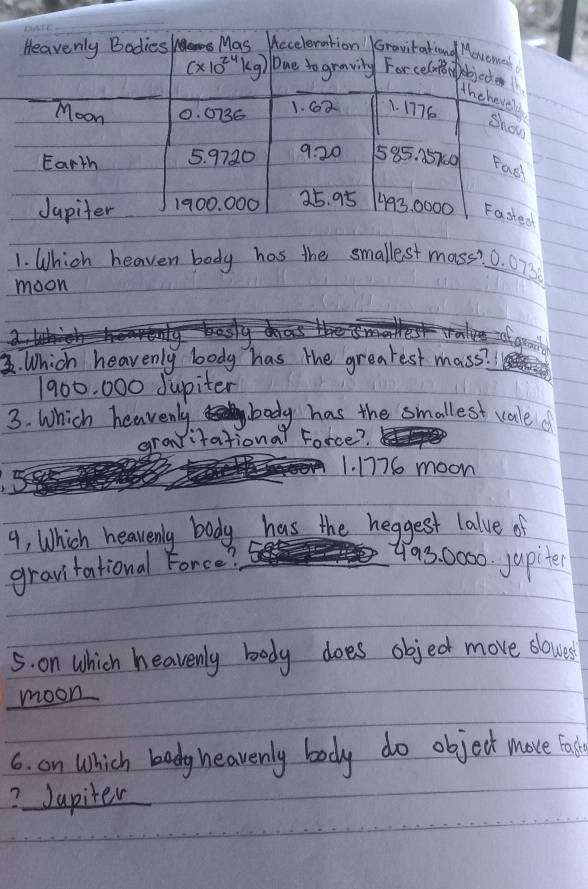 DATE
Heavenly Bodies Mas Acceleration Gravitational Movement
(×10²⁴ kg) Due to gravity Force object
Moon 0.0736 1.62 1.1776 Show
Earth 5.9720 9.20 Fast
Jupiter 1900.000 25.95 493.0000 Fastest
1. Which heaven body has the smallest mass? 0.0736
moon
2. Which heavenly body has the greatest mass?
1900.000 Jupiter
3. Which heavenly body has the smallest vale of
gravitational Force?
1.1776 moon
4, Which heavenly body has the heggest lalve of
gravitational Force? 493.0000. jupiter
5. on which heavenly body does object move slowest
moon
6. on which body heavenly body do object move
? Jupiter